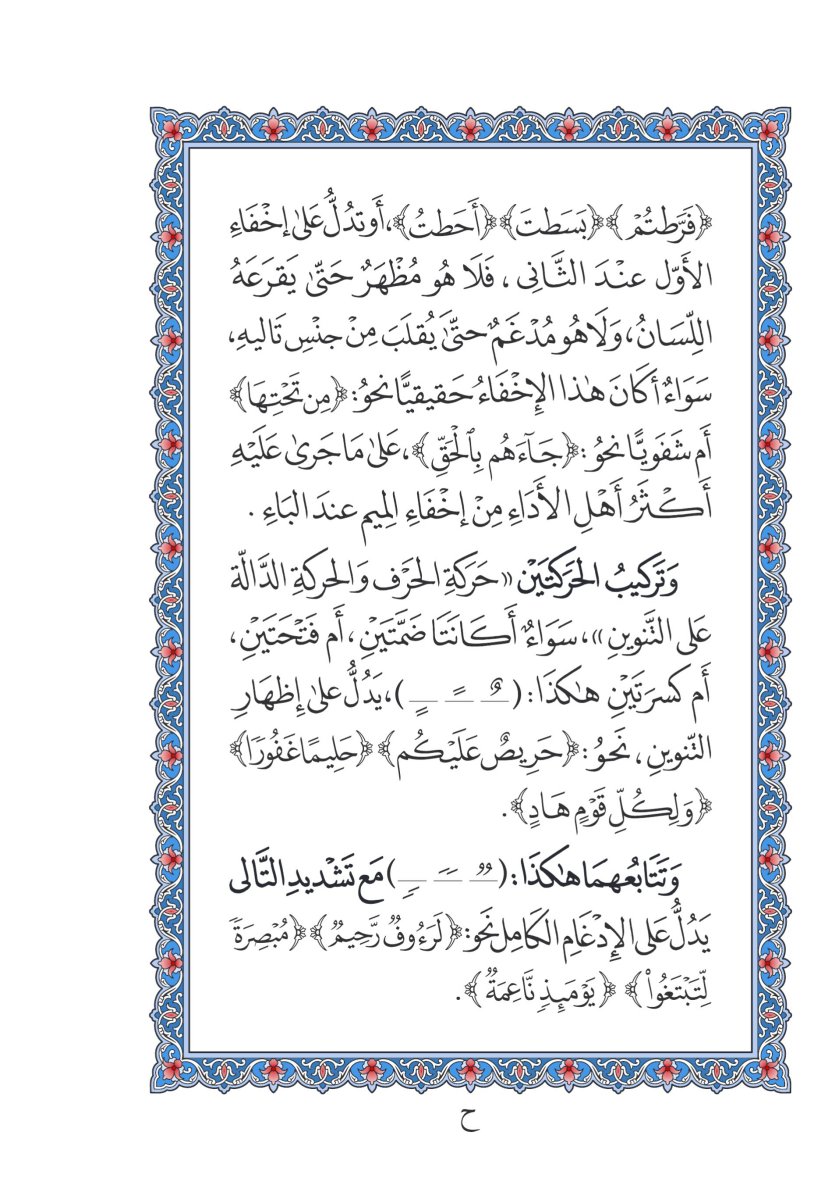 ﴿فَرَّطتُمْ﴾ ﴿بَسَطتَ﴾ ﴿أَحَطتُ﴾، أَو تَدُلُّ عَلَىٰ إِخْفَاءِ
الأَوَّل عِنْدَ الثَّانِى ، فَلَا هُو مُظْهَرٌ حَتَّىٰ يَقرَعَهُ
اللِّسَانُ، وَلَا هُو مُدْغَمٌ حتَّىٰ يُقلَبَ مِنْ جِنْسِ تَاليهِ،
سَوَاءٌ أكَانَ هَٰذا الإِخْفَاءُ حَقيقيًّا نحوُ: ﴿مِن تَحْتِهَا﴾
أَم شَفَويًّا نحوُ: ﴿جَآءَهُم بِٱلْحَقِّ﴾، عَلَىٰ مَا جَرىٰ عَلَيْهِ
أَكْثَرُ أَهْلِ الأَدَاءِ مِنْ إخْفَاءِ المِيم عندَ البَاءِ .
وَتَركِيبُ الحَرَكتَيْن « حَرَكةِ الحَرْف وَالحركةِ الدَّالّة
عَلى التَّنوينِ »، سَوَاءٌ أَكَانَتَا ضَمَّتَيْنِ، أَم فَتْحَتَيْنِ،
أَم كسرَتَيْنِ هَٰكذَا: ( ـٌ ـً ـٍ )، يَدُلُّ علىٰ إِظهَارِ
التّنوينِ، نَحوُ: ﴿حَرِيصٌ عَلَيْكُم﴾ ﴿حَلِيمًا غَفُورًا﴾
﴿وَلِكُلِّ قَوْمٍ هَادٍ﴾ .
وَتَتَابُعهمَا هَٰكذَا: ( ـࣱ ـࣰ ـࣲ ) مَع تَشْديدِ التَّالى
يَدُلُّ عَلى الإِدْغَامِ الكَامِل نَحو: ﴿لَرَءُوفࣱ رَّحِيمࣱ﴾ ﴿مُبْصِرَةࣰ
لِّتَبْتَغُواْ﴾ ﴿يَوْمَئِذࣲ نَّاعِمَةࣱ﴾ .
ح